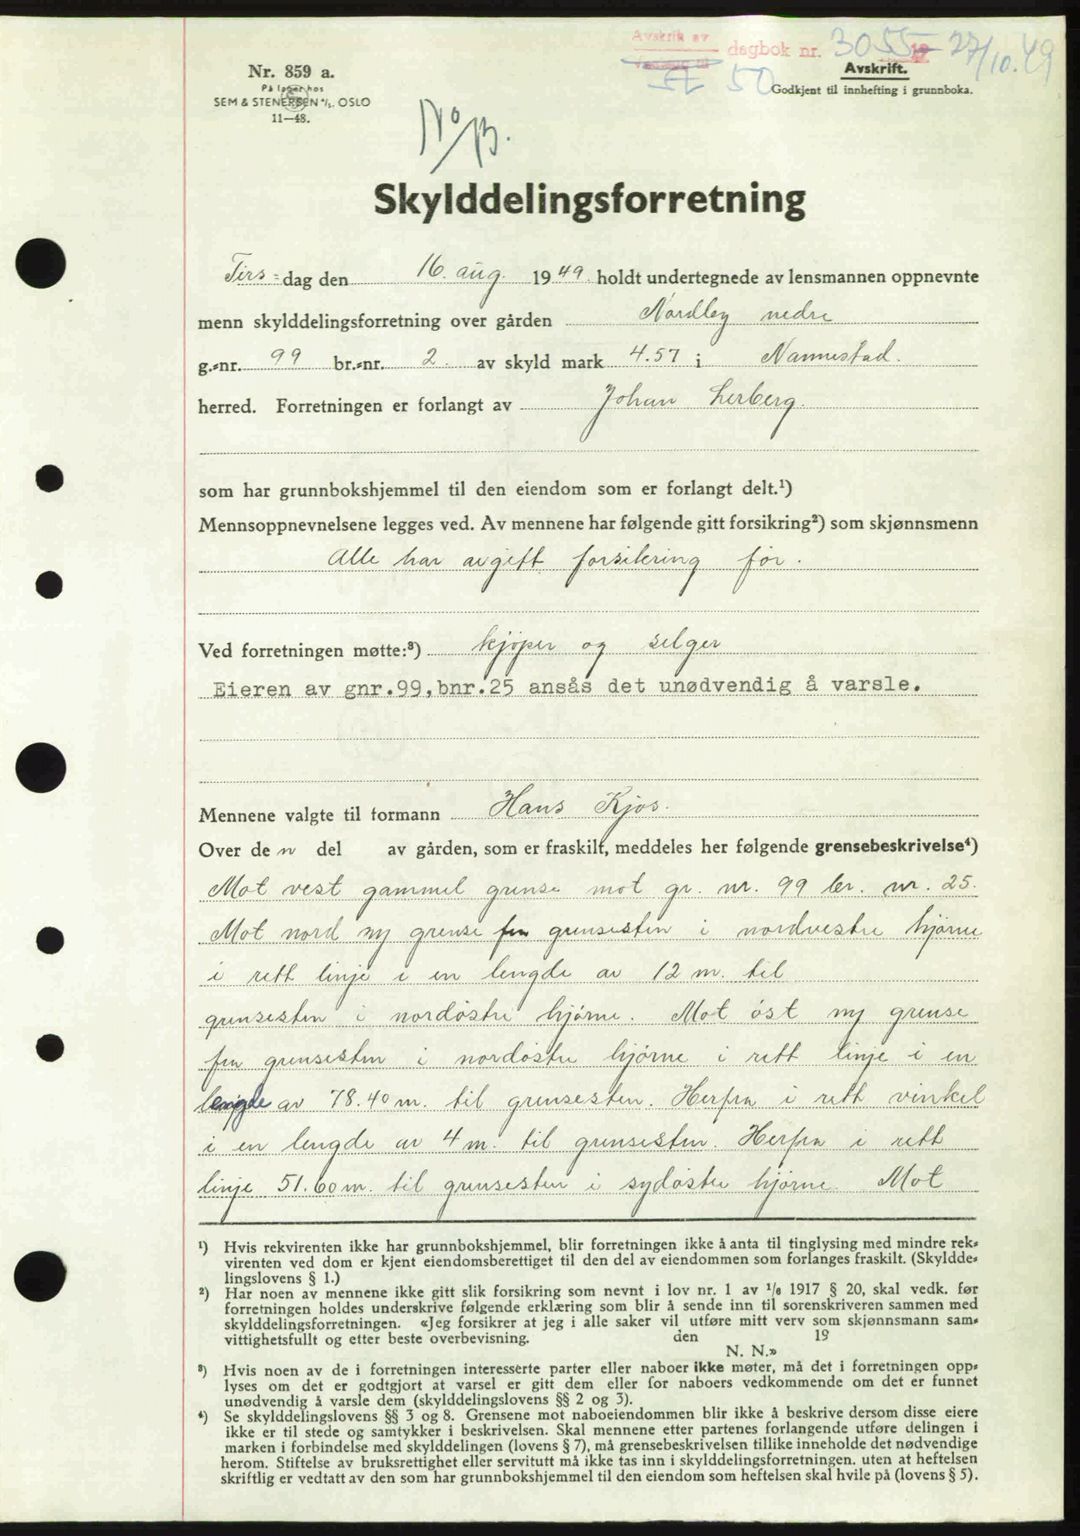 Avskrik av dagbok nr. 3055 19 27/10.49
Nr. 859 a.
På lager hos
SEM & STENERSEN A/S. OSLO
11—48.
Avskrift.
50
Godkjent til innhefting i grunnboka.
Skylddelingsforretning
Tirs-dag den 16. aug. 1949. holdt undertegnede av lensmannen oppnevnte
menn skylddelingsforretning over gården Nordby nedre
g.-nr. 99 br.-nr. 2. av skyld mark 4.57 i Nannestad.
herred. Forretningen er forlangt av Johan Lerberg.
som har grunnbokshjemmel til den eiendom som er forlangt delt.¹)
Mennsoppnevnelsene legges ved. Av mennene har følgende gitt forsikring²) som skjønnsmenn
Alle har avgitt forsikring før.
Ved forretningen møtte:³) kjøper og selger
Eieren av gnr.99,bnr.25 ansås det unødvendig å varsle.
Mennene valgte til formann Hans Kjos.
Over den del av gården, som er fraskilt, meddeles her følgende grensebeskrivelse⁴)
Mot vest gammel grense mot gr. nr. 99 br. nr. 25.
Mot nord ny grense fra grensesten i nordvestre hjørne
i rett linje i en lengde av 12 m. til
grensesten i nordöstre hjørne. Mot öst ny grense
fra grensesten i nordöstre hjørne i rett linje i en
lengde av 78.40 m. til grensesten. Herfra i rett vinkel
i en lengde av 4 m. til grensesten. Herfra i rett
linje 51.60 m. til grensesten i sydöstre hjørne. Mot
¹) Hvis rekvirenten ikke har grunnbokshjemmel, blir forretningen ikke å anta til tinglysing med mindre rek-
virenten ved dom er kjent eiendomsberettiget til den del av eiendommen som forlanges fraskilt. (Skyldde-
lingslovens § 1.)
²) Har noen av mennene ikke gitt slik forsikring som nevnt i lov nr. 1 av 1/6 1917 § 20, skal vedk. før
forretningen holdes underskrive følgende erklæring som blir å sende inn til sorenskriveren sammen med
skylddelingsforretningen. «Jeg forsikrer at jeg i alle saker vil utføre mitt verv som skjønnsmann sam-
vittighetsfullt og etter beste overbevisning. den 19
N. N.»
³) Hvis noen av de i forretningen interesserte parter eller naboer ikke møter, må det i forretningen opp-
lyses om det er godtgjort at varsel er gitt dem eller for naboers vedkommende om det er funnet
unødvendig å varsle dem (skylddelingslovens §§ 2 og 3).
⁴) Se skylddelingslovens §§ 3 og 8. Grensene mot naboeiendommen blir ikke å beskrive dersom disse eiere
ikke er til stede og samtykker i beskrivelsen. Skal mennene etter partenes forlangende utføre delingen i
marken i forbindelse med skylddelingen (lovens § 7), må grensebeskrivelsen tillike inneholde det nødvendige
herom. Stiftelse av bruksrettighet eller servitutt må ikke tas inn i skylddelingsforretningen, uten at heftelsen
skriftlig er vedtatt av den som har grunnbokshjemmel til den eiendom som heftelsen skal hvile på (lovens § 5).